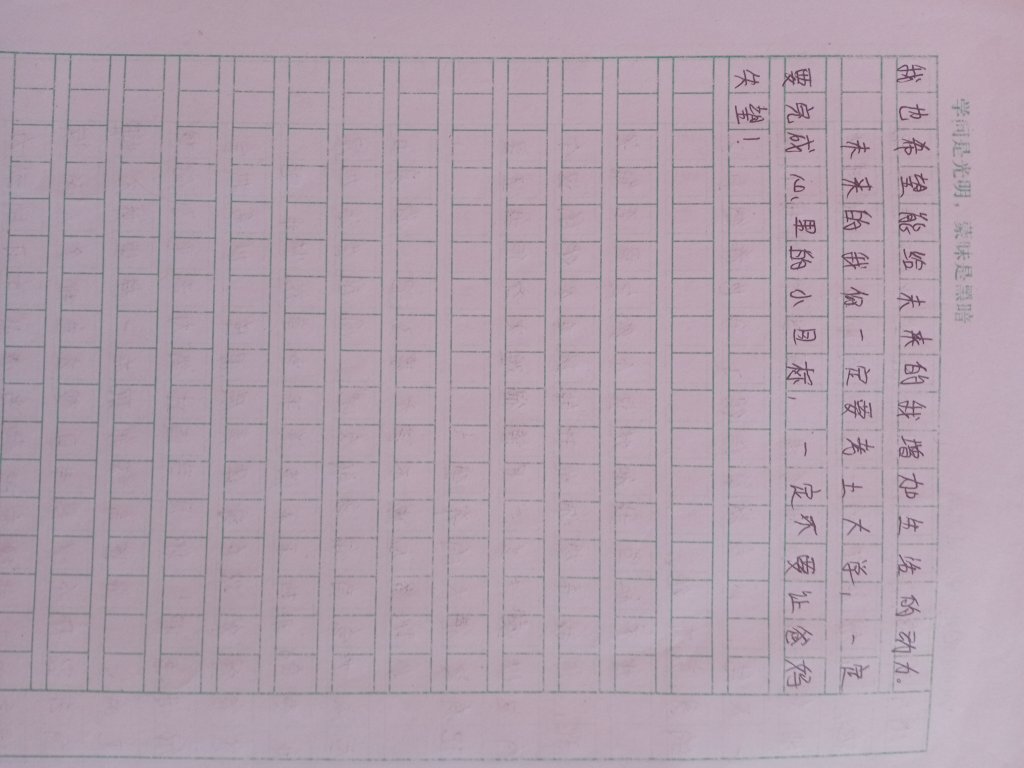 学问是光明，蒙昧是黑暗
我也希望能给未来的我增加生活的动力。
未来的我你一定要考上大学，一定
要完成心里的小目标，一定不要让爸妈
失望！